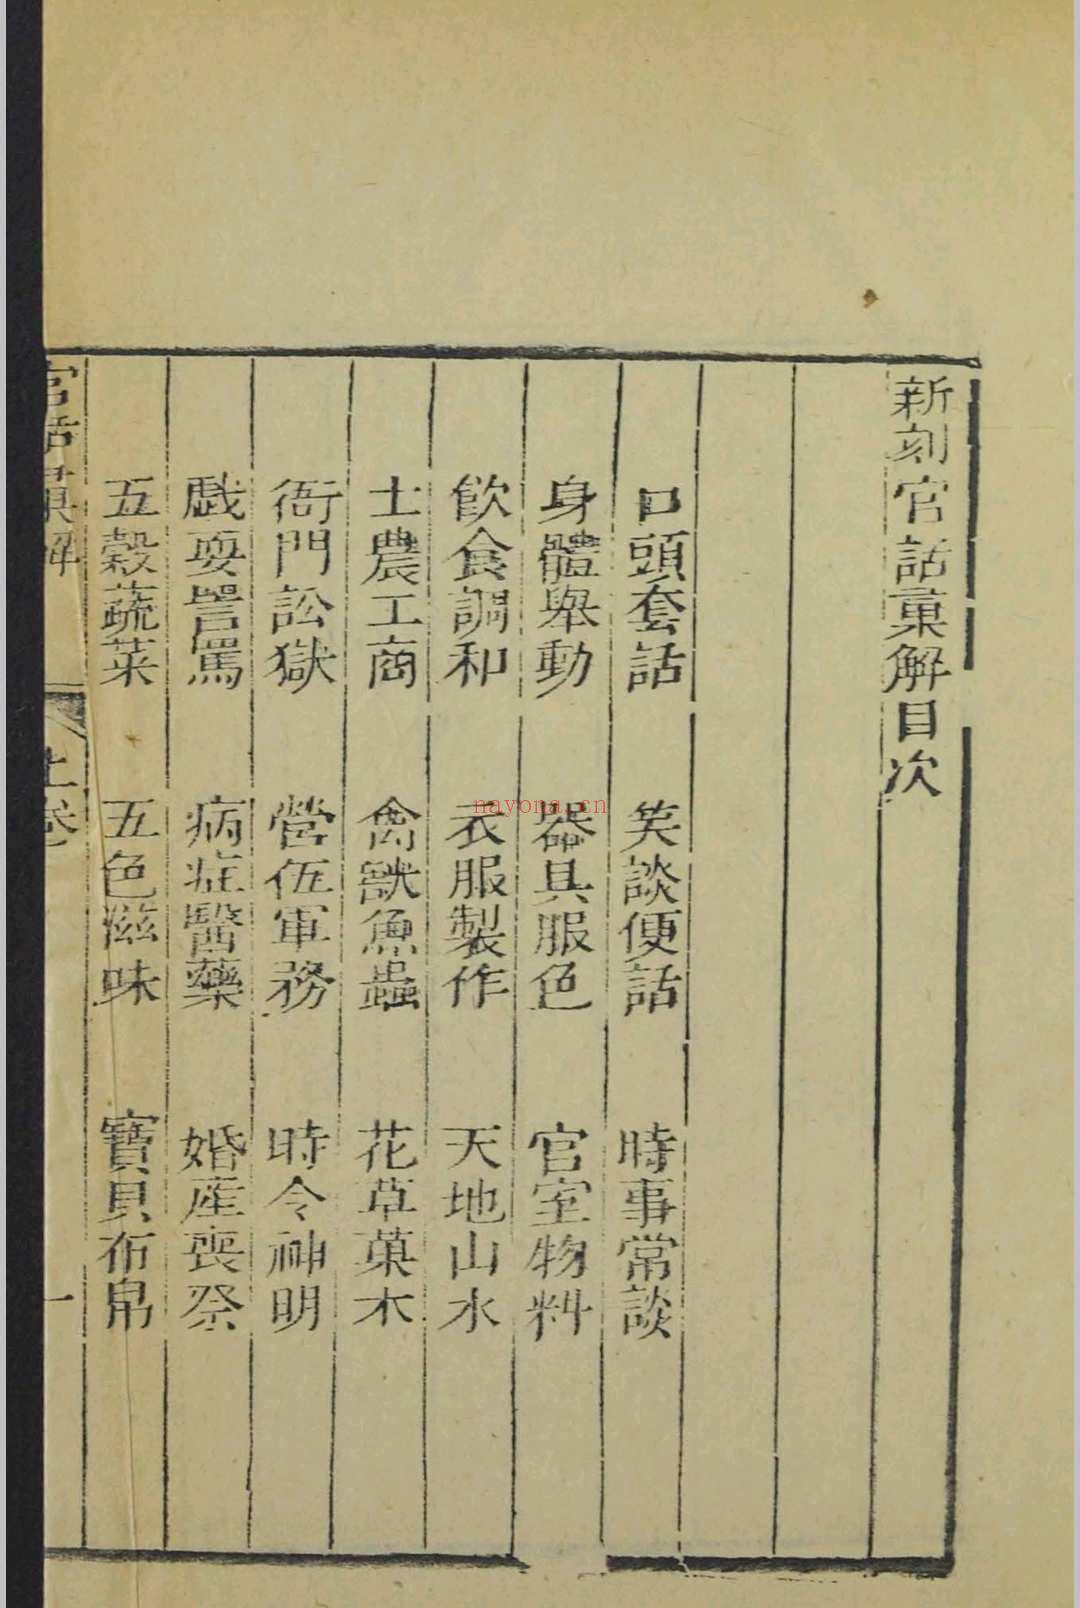 新刻官話菓解目次
口頭套話　笑談便話　時事常談
身體舉動　器具服色　官室物料
飲食調和　衣服製作　天地山水
士農工商　禽獸魚蟲　花草菓木
衙門訟獄　營伍軍務　時令神明
戲耍詈罵　病症醫藥　婚產喪祭
五穀蔬菜　五色滋味　寶貝布帛
官話菓解　上卷　一
nayona.cn